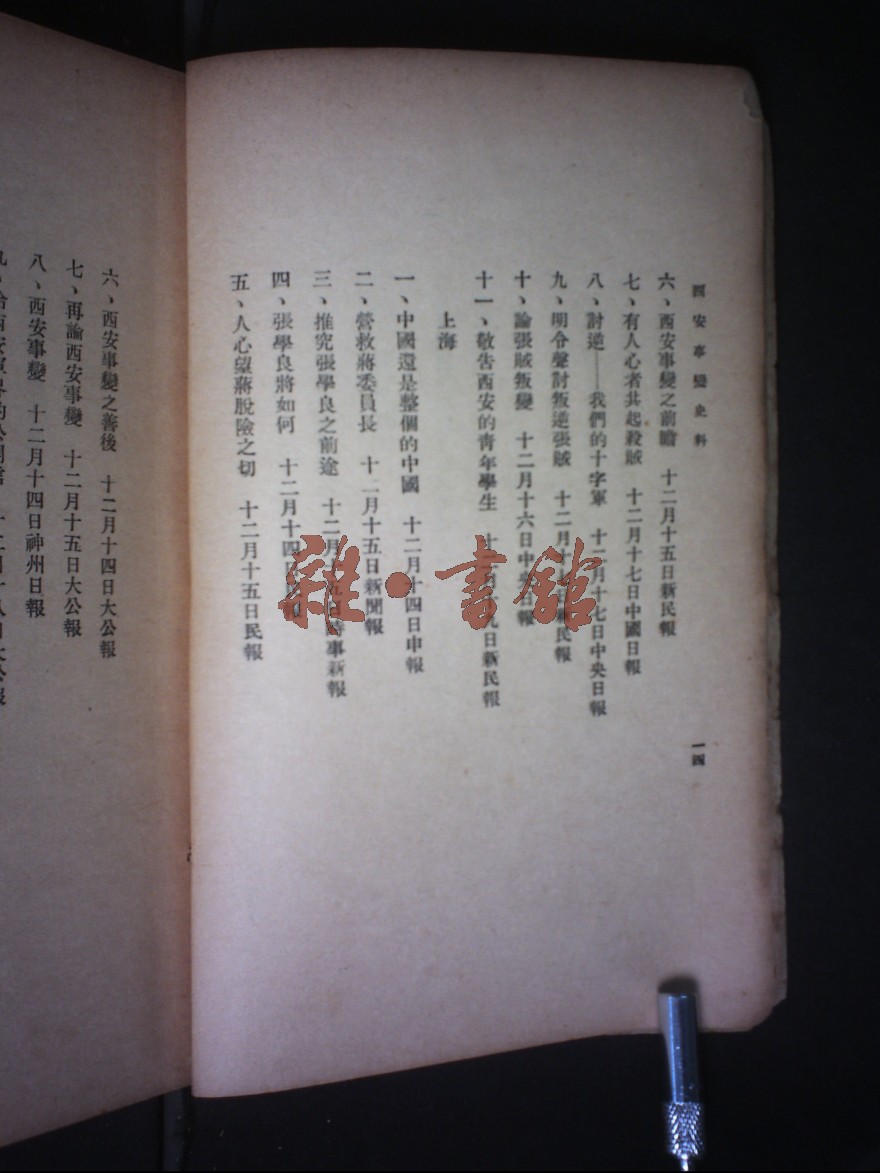 西安事變史料
一四
六、西安事變之前瞻 十二月十五日新民報
七、有人心者共起殺賊 十二月十七日中國日報
八、討逆——我們的十字軍 十二月十七日中央日報
九、明令聲討叛逆張賊 十二月十七日新民報
十、論張賊叛變 十二月十六日中 日報
十一、敬告西安的青年學生 十二月十九日新民報
上海
一、中國還是整個的中國 十二月十四日申報
二、營救蔣委員長 十二月十五日新聞報
三、推究張學良之前途 十二月十五日時事新報
四、張學良將如何 十二月十四日 報
五、人心望蔣脫險之切 十二月十五日民報
六、西安事變之善後 十二月十四日大公報
七、再論西安事變 十二月十五日大公報
八、西安事變 十二月十四日神州日報
九、給西安軍界的公開信 十二月十八日大公報
雜·書館